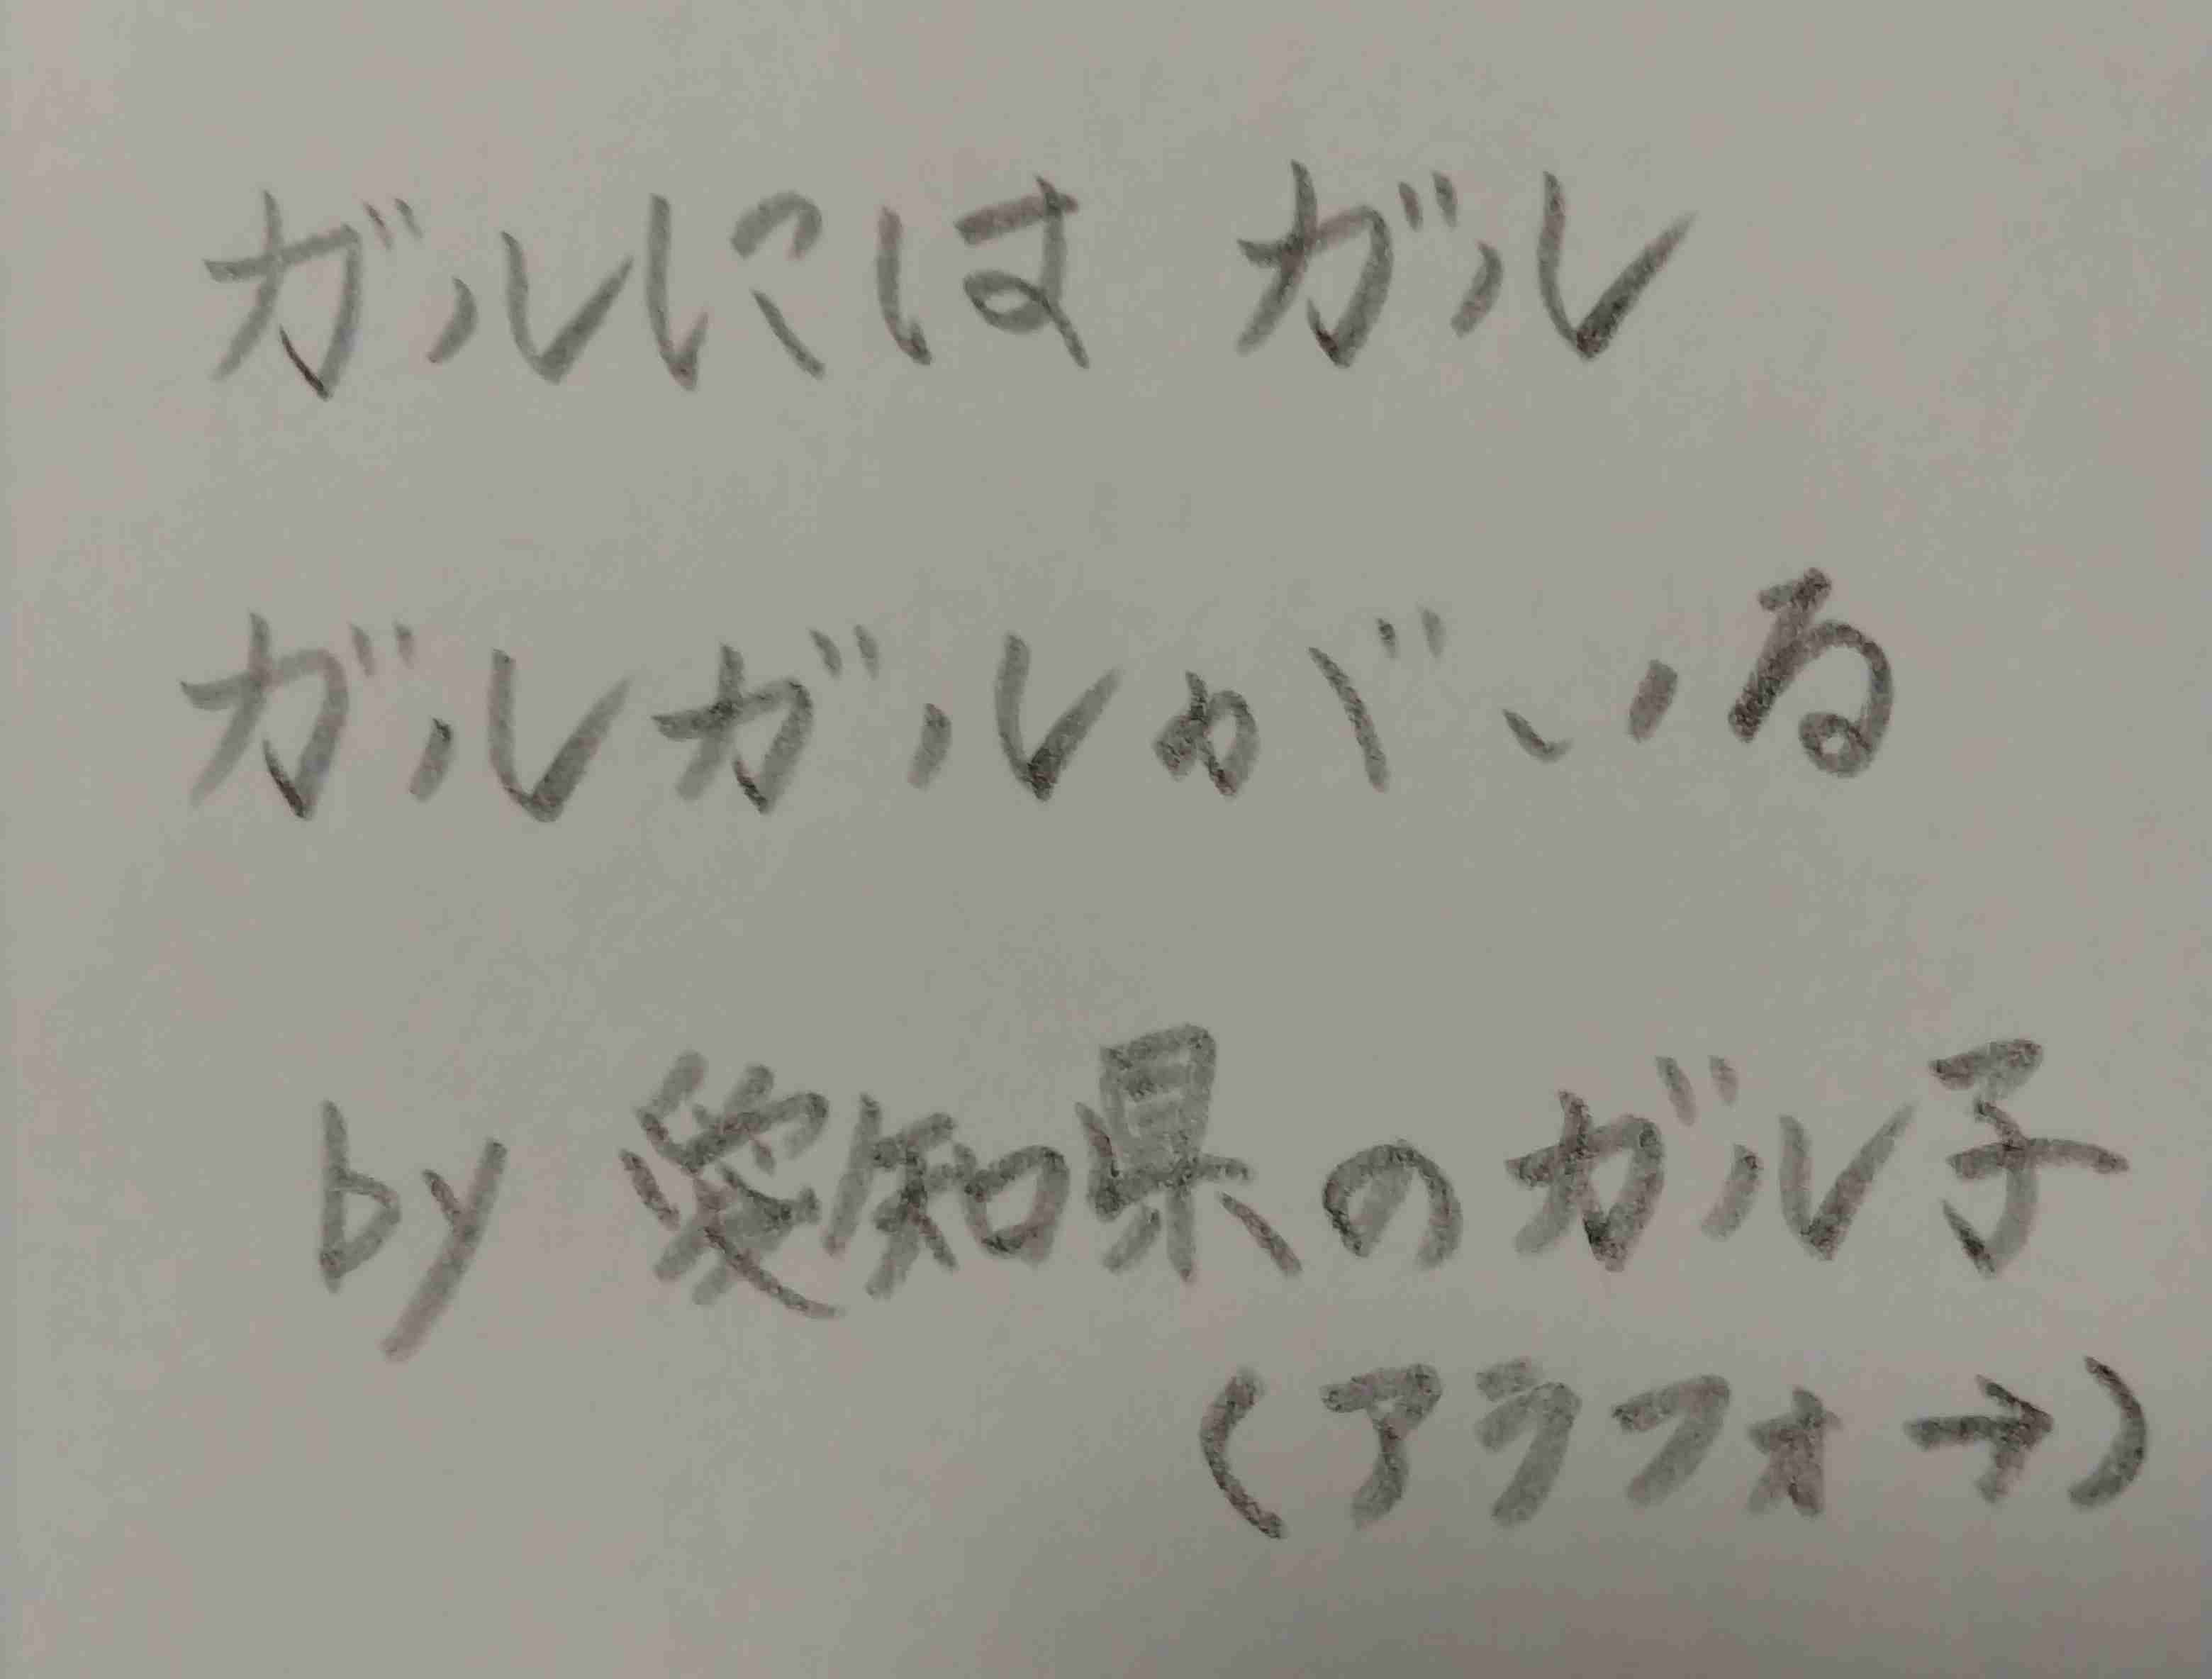 ガルにはガル
ガルガルがいる
by 愛知県のガル子
(アラフォ→)